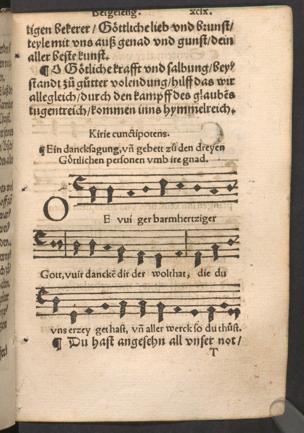 Bergeseng. xcix.
tigen bekerer / Göttliche lieb vnd brunst /
teyle mit vns auß genad vnd gunst / dein
aller beste kunst.
¶ O Götliche krafft vnd salbung / bey⸗
standt zů gůtter volendung / hilff das wir
allegleich / durch den kampff des glaubēs
tugentreich / kommen inns hymmelreich.
Kirie cunctipotens.
¶ Ein dancksagung, vn̄ gebett zů den dreyen
Göttlichen personen vmb ire gnad.
O E vvi ger barmhertziger
Gott, vvir danckē dir der wolthat, die du
vns erzey get hast, vn̄ aller werck so du thůst.
¶ Du hast angesehn all vnser not /
T